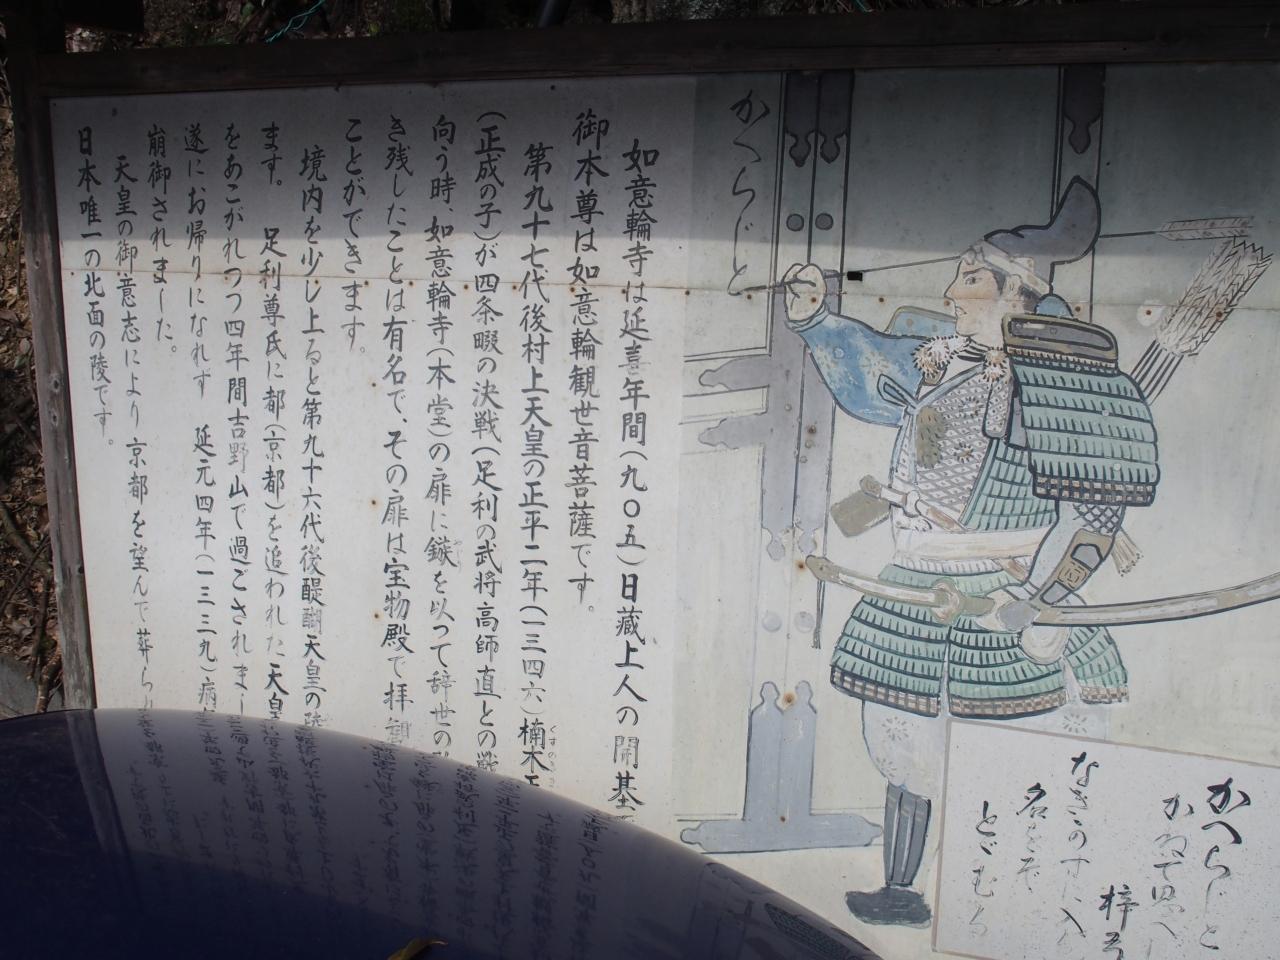 かへらじと
如意輪寺は延喜年間(九〇五)日蔵上人の開基
御本尊は如意輪観世音菩薩です。
第九十七代後村上天皇の正平二年(一三四六)楠木
(正成の子)が四条畷の決戦(足利の武将高師直との戦
向う時、如意輪寺(本堂)の扉に鏃を以って辞世の
き残したことは有名で、その扉は宝物殿で拝観
ことができます。
境内を少し上ると第九十六代後醍醐天皇の陵
ます。 足利尊氏に都(京都)を追われた天皇
をあこがれつつ四年間吉野山で過ごされま
遂にお帰りになれず 延元四年(一三三九)病
崩御されました。
天皇の御意志により京都を望んで葬ら
日本唯一の北面の陵です。
かへらじと
かねて思へ
梓弓
なきかのすに入
名をぞ
とどむる